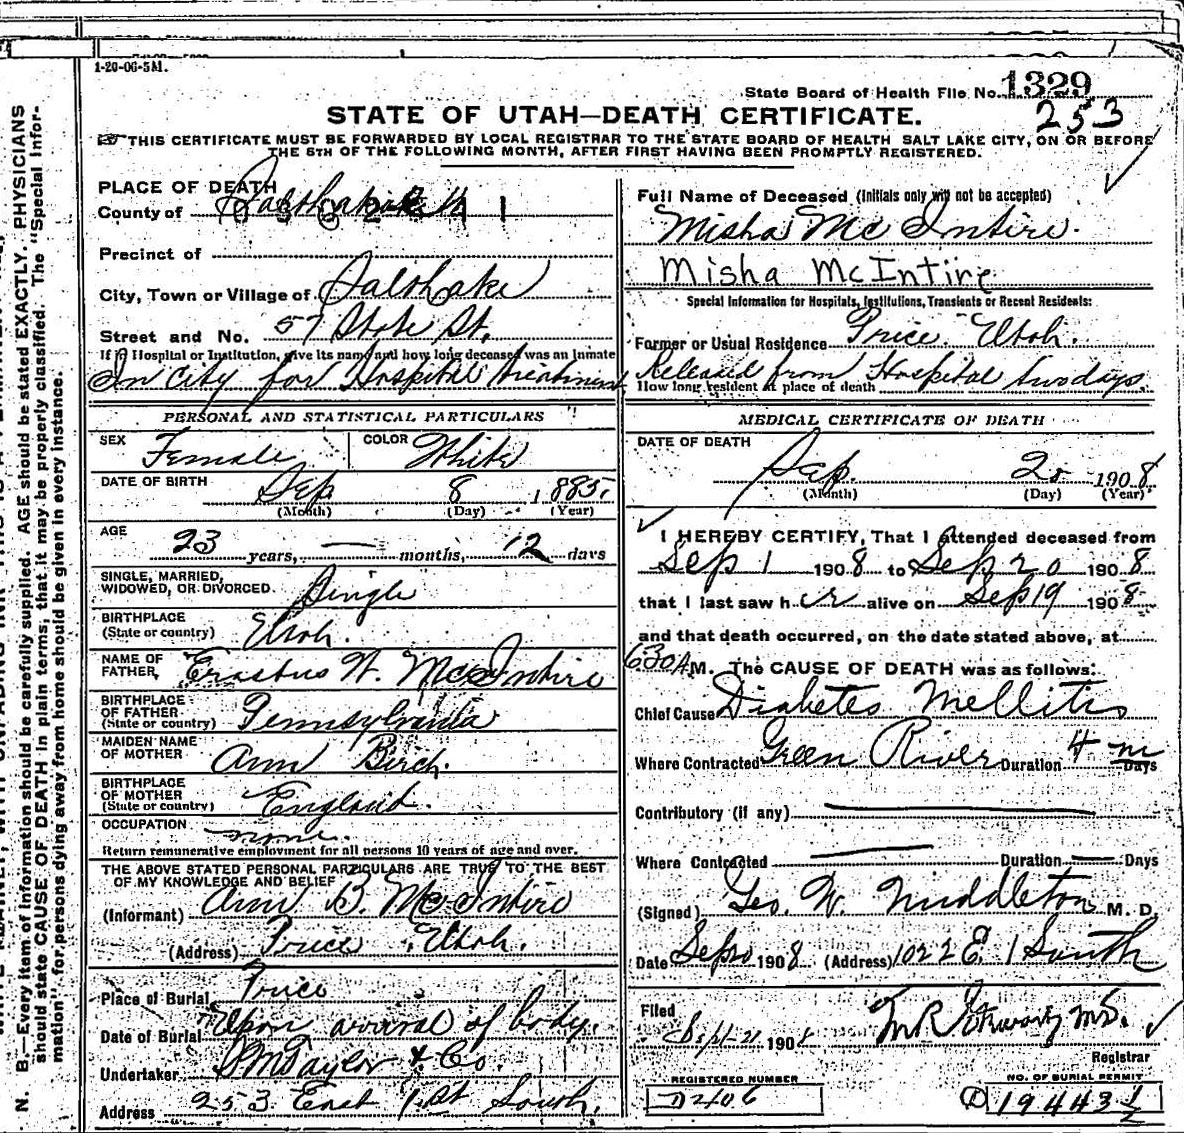 1-20-06-5M.
State Board of Health File No. 1329
253
STATE OF UTAH—DEATH CERTIFICATE.
THIS CERTIFICATE MUST BE FORWARDED BY LOCAL REGISTRAR TO THE STATE BOARD OF HEALTH SALT LAKE CITY, ON OR BEFORE
THE 5TH OF THE FOLLOWING MONTH, AFTER FIRST HAVING BEEN PROMPTLY REGISTERED.
N. B.—Every item of information should be carefully supplied. AGE should be stated EXACTLY. PHYSICIANS
should state CAUSE OF DEATH in plain terms, that it may be properly classified. The "Special Infor-
mation" for persons dying away from home should be given in every instance.
PLACE OF DEATH
County of Salt Lake
Precinct of
City, Town or Village of Salt Lake
Street and No. 57 State St.
If in Hospital or Institution, give its name and how long deceased was an inmate
In City for Hospital treatment
PERSONAL AND STATISTICAL PARTICULARS
SEX Female COLOR White
DATE OF BIRTH Sep 8 1885.
(Month) (Day) (Year)
AGE 23 years, — months, 12 days
SINGLE, MARRIED,
WIDOWED, OR DIVORCED. Single
BIRTHPLACE
(State or country) Utah.
NAME OF
FATHER Erastus W. McIntire
BIRTHPLACE
OF FATHER
(State or country) Pennsylvania
MAIDEN NAME
OF MOTHER Ann Birch.
BIRTHPLACE
OF MOTHER
(State or country) England.
OCCUPATION none.
Return remunerative employment for all persons 10 years of age and over.
THE ABOVE STATED PERSONAL PARTICULARS ARE TRUE TO THE BEST
OF MY KNOWLEDGE AND BELIEF
(Informant) Ann B. McIntire
(Address) Price Utah.
Place of Burial Price
Date of Burial Upon arrival of body.
Undertaker S M Taylor & Co.
Address 253 East 1st South.
Full Name of Deceased (Initials only will not be accepted)
Misha Mc Intire.
Misha McIntire
Special Information for Hospitals, Institutions, Transients or Recent Residents:
Former or Usual Residence Price Utah.
Released from Hospital two days.
How long resident at place of death
MEDICAL CERTIFICATE OF DEATH
DATE OF DEATH
Sep. 20 1908
(Month) (Day) (Year)
I HEREBY CERTIFY, That I attended deceased from
Sep 1 1908 to Sep 20 1908
that I last saw her alive on Sep 19 1908
and that death occurred, on the date stated above, at
630 A M. The CAUSE OF DEATH was as follows:
Chief Cause Diabetes Mellitis
Where Contracted Green River Duration 4 m Days
Contributory (if any)
Where Contracted Duration Days
(Signed) Geo. W. Middleton M. D.
Date Sep 20 1908 (Address) 1022 E. 1 South
Filed Sept-21 1908
Registrar
REGISTERED NUMBER
D2406
NO. OF BURIAL PERMIT
D 19443 1/2